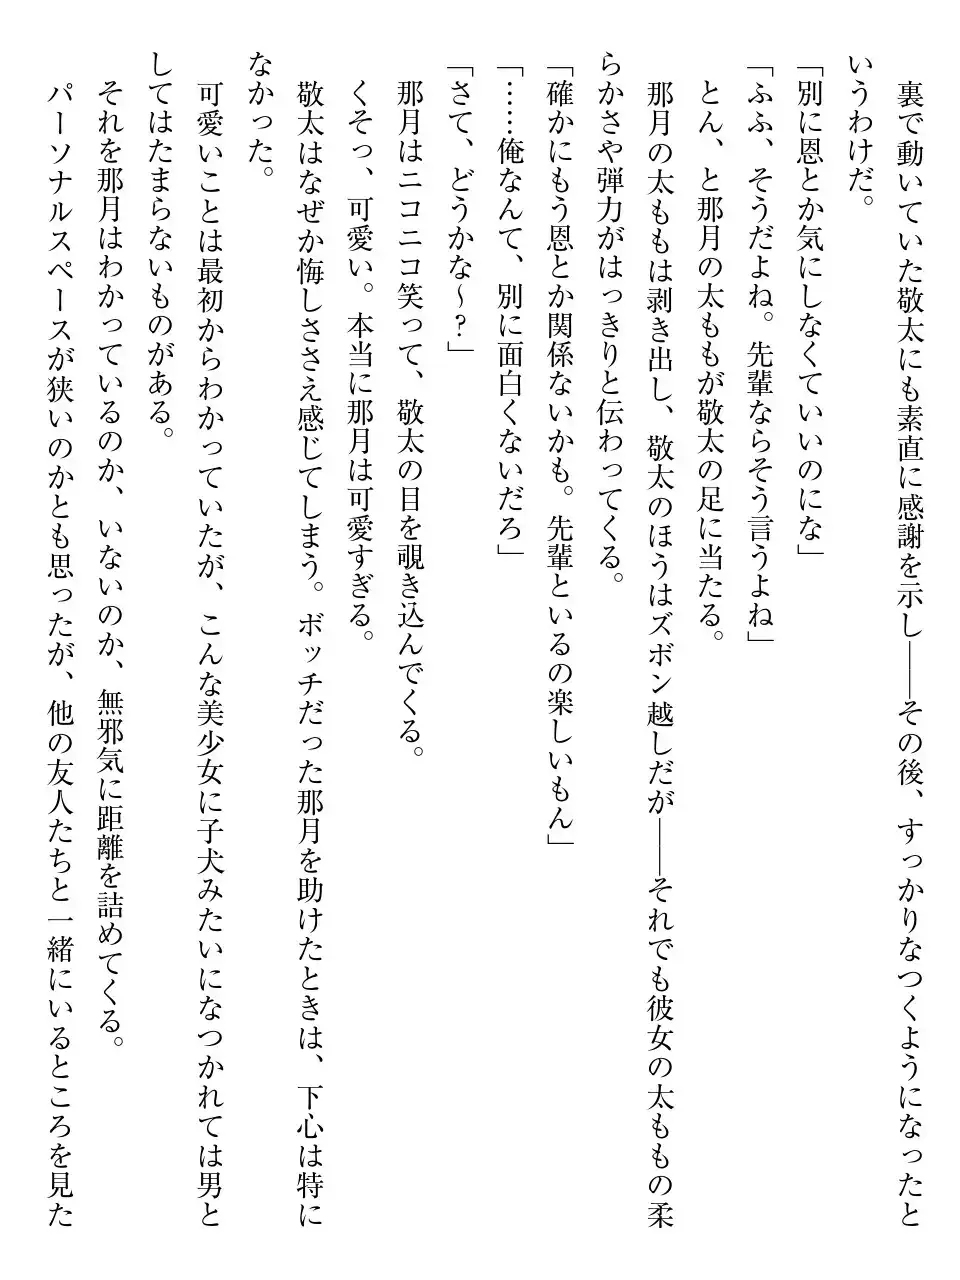 裏で動いていた敬太にも素直に感謝を示し――その後、すっかりなつくようになったと
いうわけだ。
「別に恩とか気にしなくていいのにな」
「ふふ、そうだよね。先輩ならそう言うよね」
とん、と那月の太ももが敬太の足に当たる。
那月の太ももは剥き出し、敬太のほうはズボン越しだが――それでも彼女の太ももの柔
らかさや弾力がはっきりと伝わってくる。
「確かにもう恩とか関係ないかも。先輩といるの楽しいもん」
「……俺なんて、別に面白くないだろ」
「さて、どうかな～?」
那月はニコニコ笑って、敬太の目を覗き込んでくる。
くそっ、可愛い。本当に那月は可愛すぎる。
敬太はなぜか悔しささえ感じてしまう。ボッチだった那月を助けたときは、下心は特に
なかった。
可愛いことは最初からわかっていたが、こんな美少女に子犬みたいになつかれては男と
してはたまらないものがある。
それを那月はわかっているのか、いないのか、無邪気に距離を詰めてくる。
パーソナルスペースが狭いのかとも思ったが、他の友人たちと一緒にいるところを見た